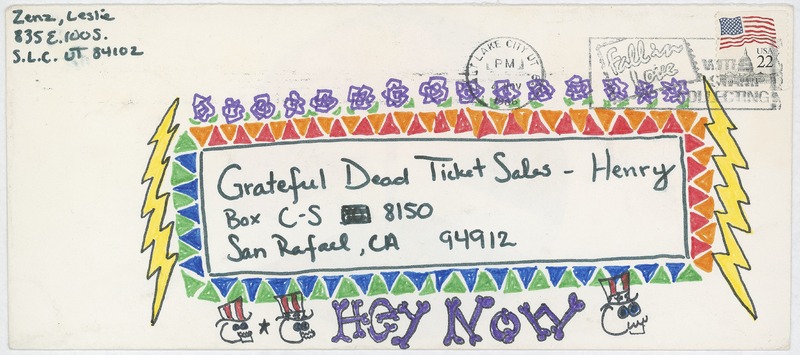 Zenz, Leslie
835 E. 100 S.
S.L.C. UT 84102
LAKE CITY UT
PM
Fall in
Love
WITH
STAMP
COLLECTING
USA
22
Grateful Dead Ticket Sales - Henry
Box C-S 8150
San Rafael, CA 94912
HEY NOW